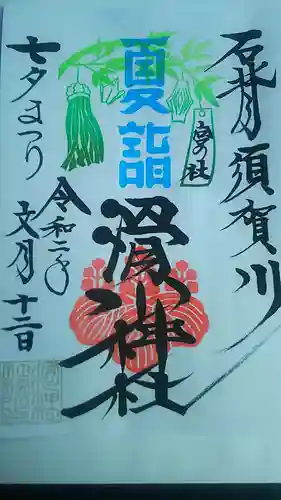 石背須賀川
夏詣
滑川神社
七夕まつり
令和二年
文月十二日